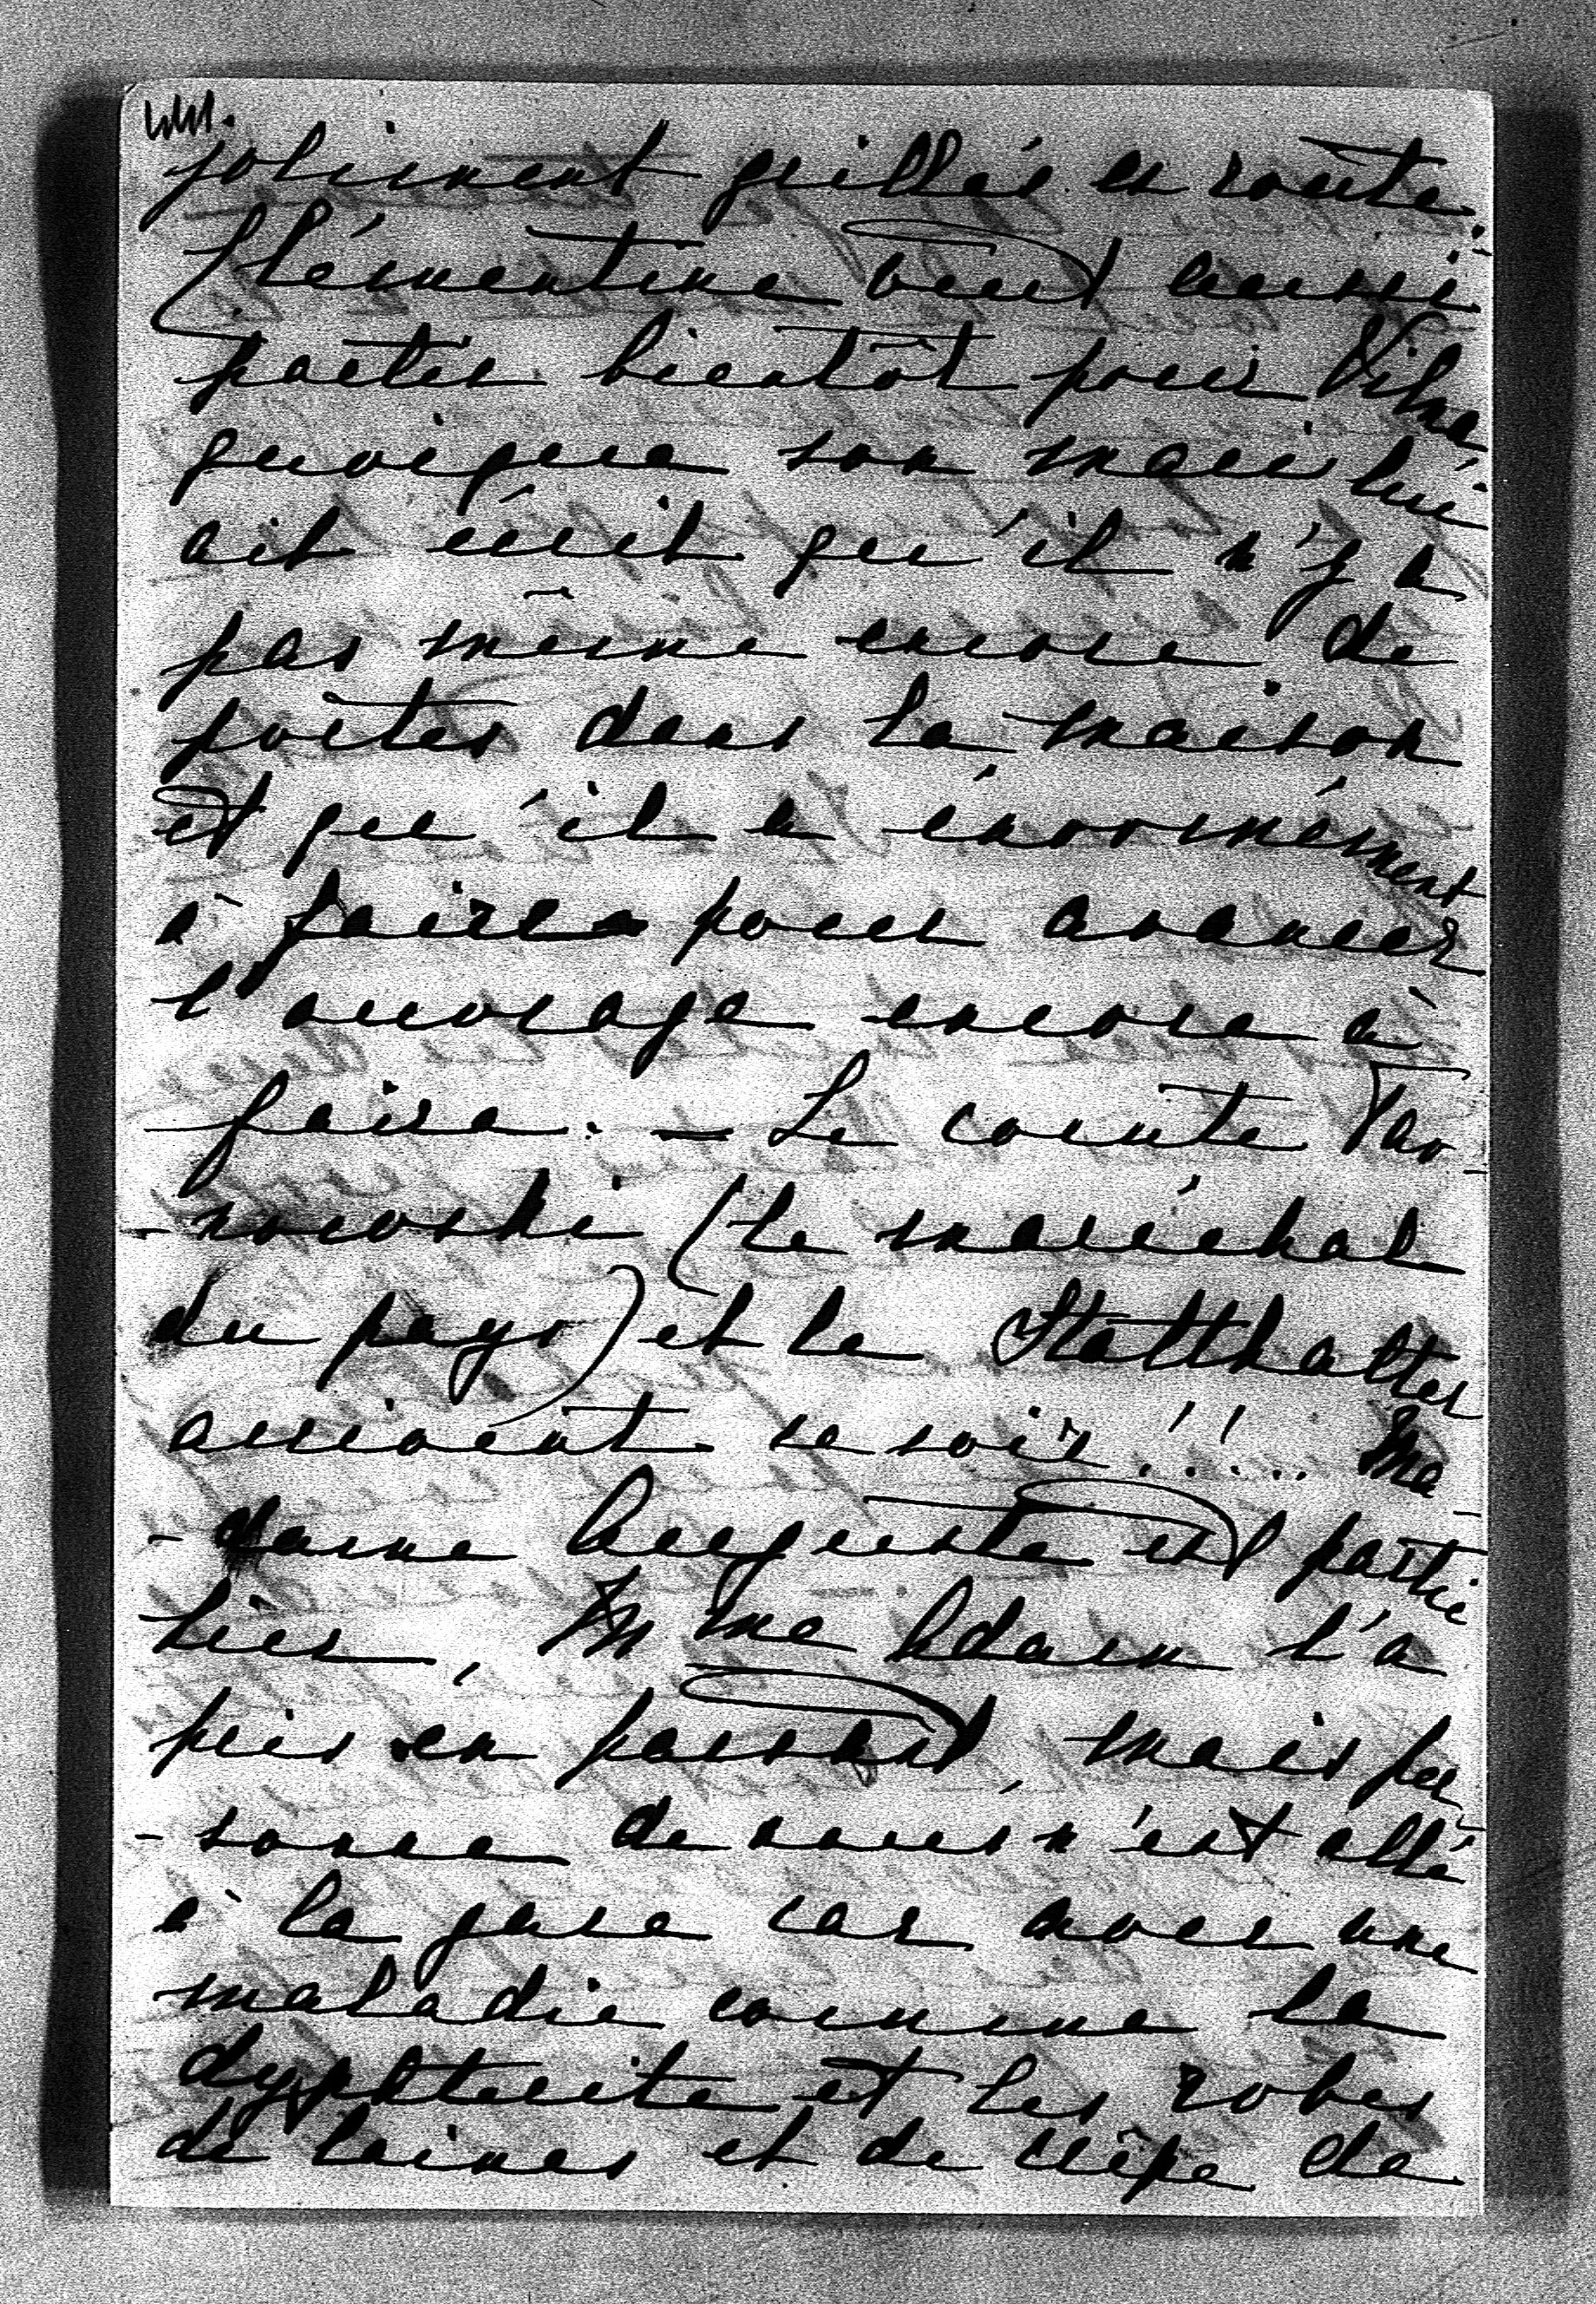 joliment grillée en route.
Clémentine veut aussi
partir bientôt pour Vilna
quoique son mari lui
ait écrit qu'il n'y a
pas même encore de
portes dans la maison
et qu'il a énormément
à faire pour avancer
l'ouvrage encore à
faire. – Le comte Tar-
-nowski (le maréchal
du pays) et le Statthalter
arrivent ce soir!!... Ma-
-dame Auguste est partie
hier, Mme Adam l'a
pris en passant, mais per-
-sonne de nous n'est allé
à la gare car avec une
maladie comme la
dyphterite et les robes
de laines et de crêpe de